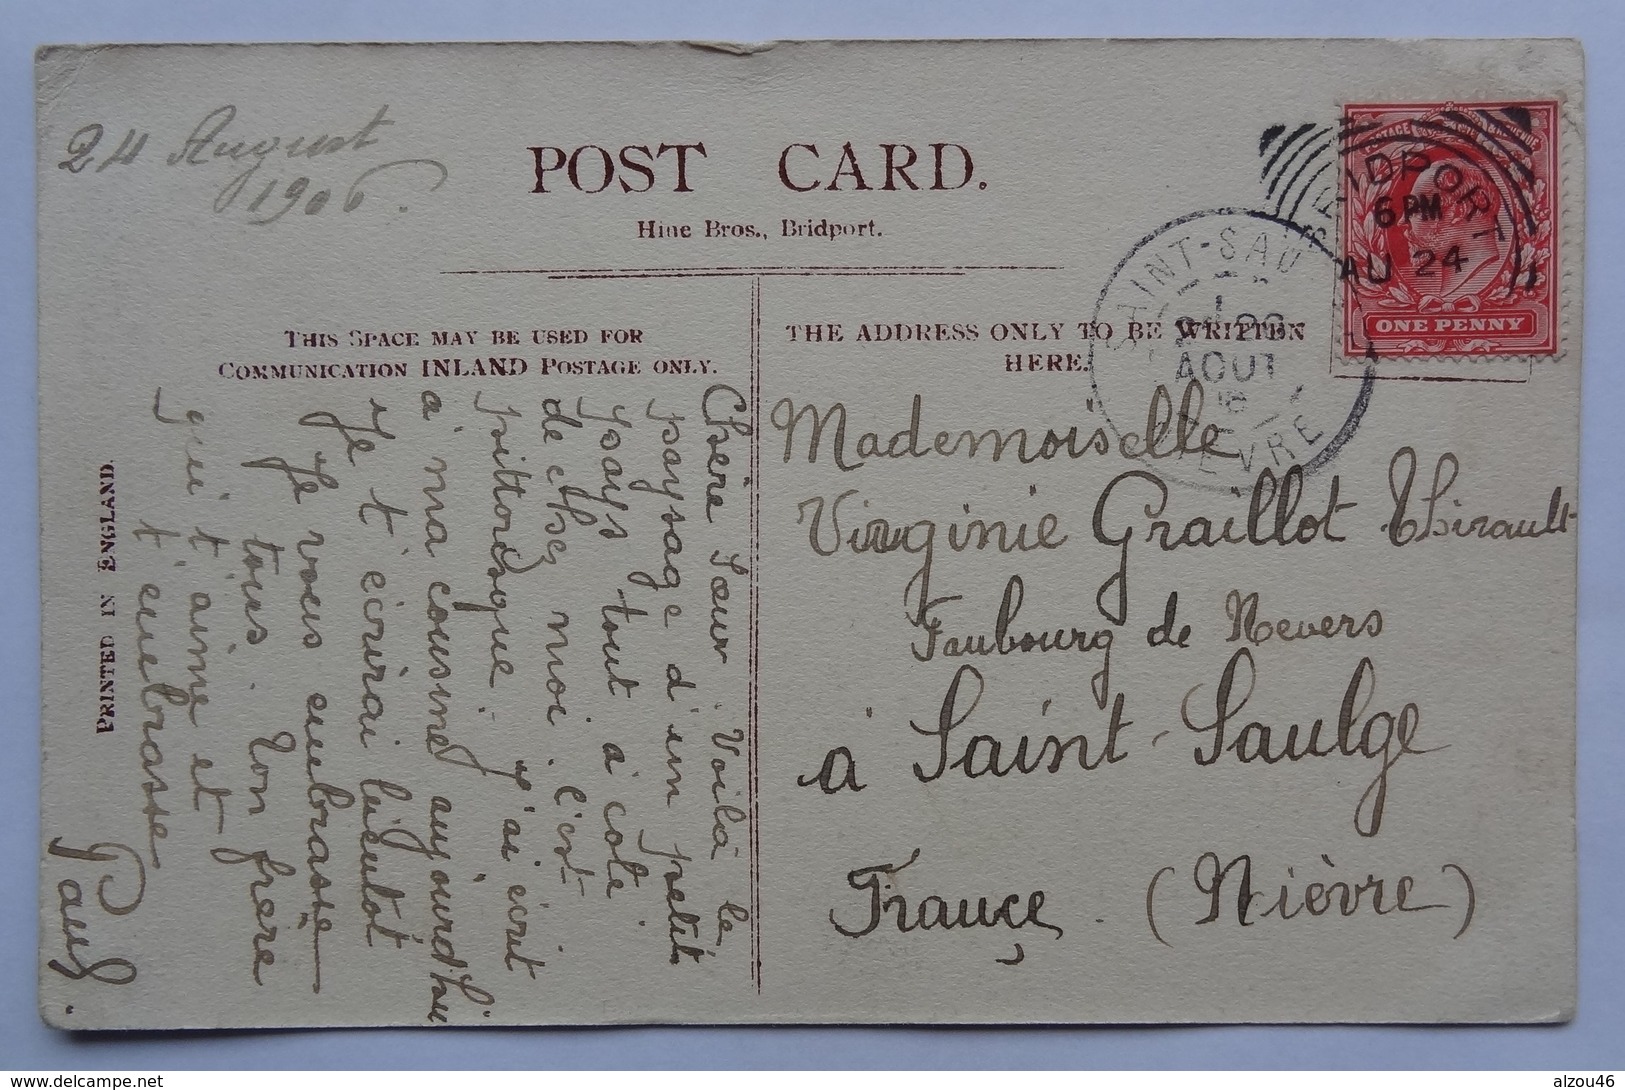 24 August
1906.
POST CARD.
Hine Bros., Bridport.
THIS SPACE MAY BE USED FOR
COMMUNICATION INLAND POSTAGE ONLY.
THE ADDRESS ONLY TO BE WRITTEN
HERE.
PRINTED IN ENGLAND.
BRIDPORT
6 PM
AU 24
POSTAGE & REVENUE
ONE PENNY
SAINT-SAU
AOUT
NIEVRE
Chère Sœur. Voilà le
paysage d'un petit
pays tout à côté
de chez moi. C'est
pittoresque. J'ai écrit
à ma cousine aujourd'hui
Je t'écrirai bientôt
Je vous embrasse
tous. Ton frère
qui t'aime et
t'embrasse
Paul.
Mademoiselle
Virginie Graillot Thirault
Faubourg de Nevers
à Saint-Saulge
France. (Nièvre)
delcampe.net
alzou46